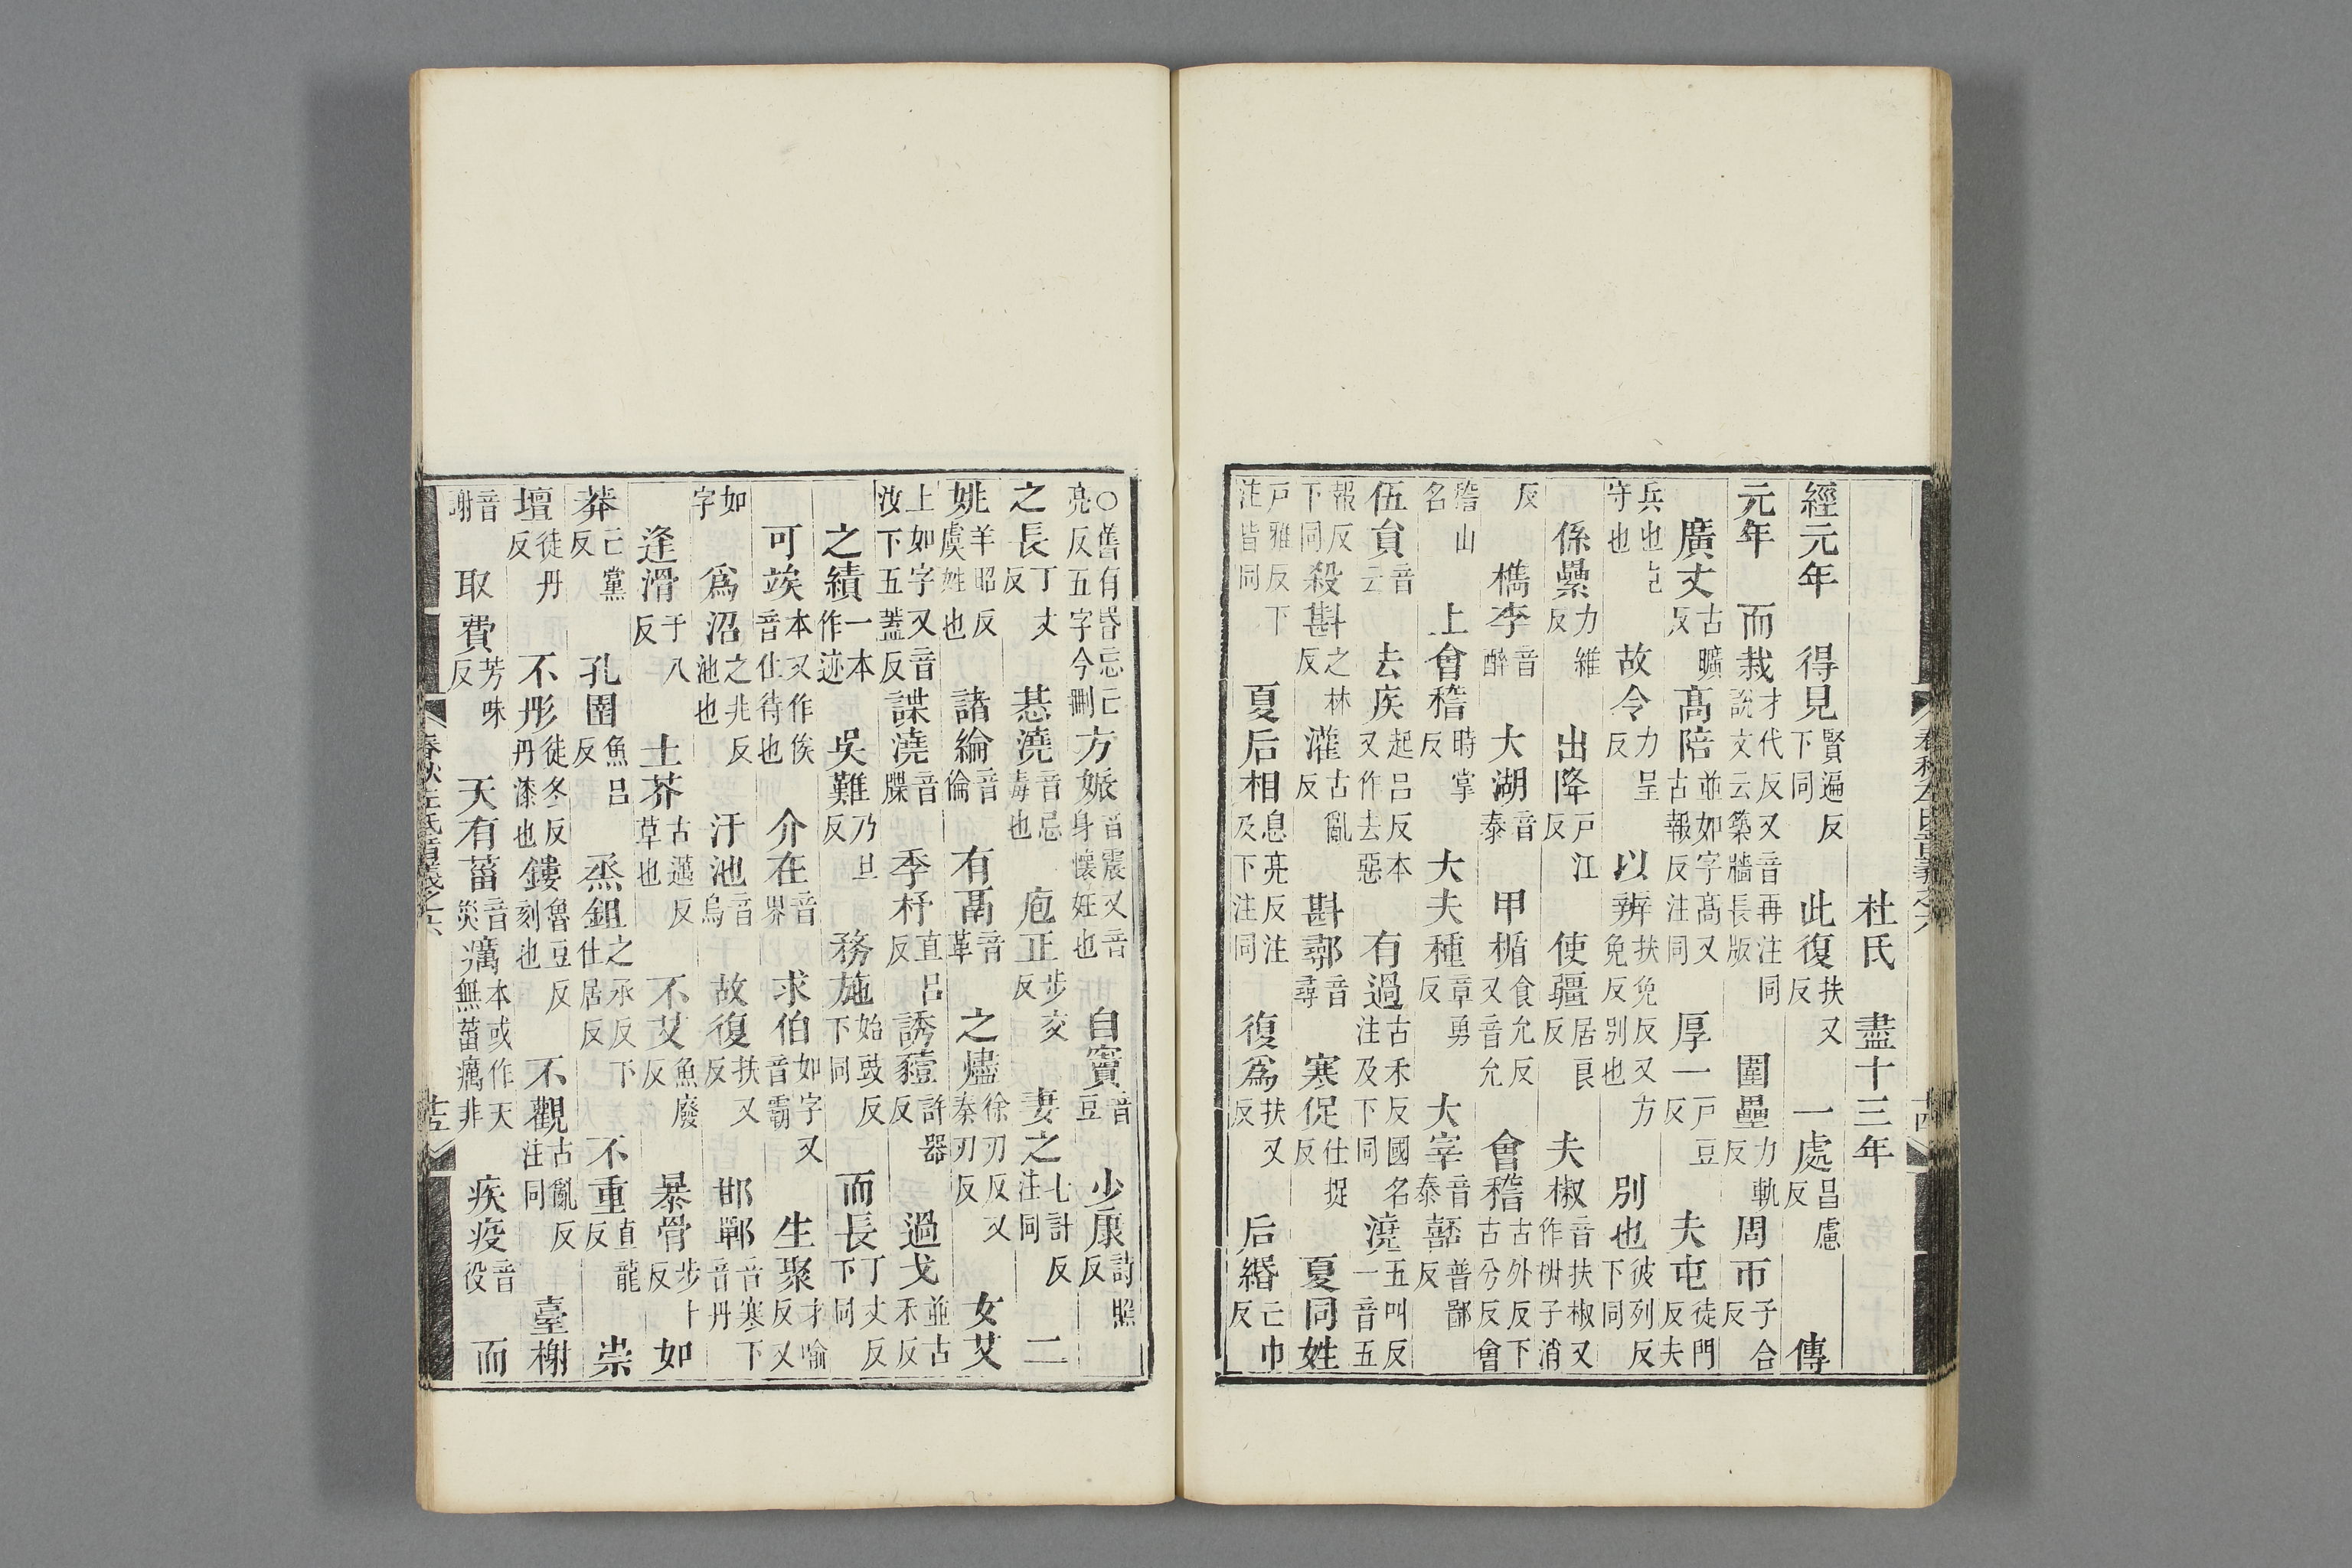 春秋左氏音義之六 十四
杜氏 盡十三年
經元年 得見賢遍反下同 此復扶又反 一處昌慮反 傳
元年 而栽才代反又音再注同說文云築牆長版 圍壘力軌反 周帀子合反
廣丈古曠反 高陪並如字高又古報反注同 厚一戶豆反 夫屯徒門反夫
兵也屯守也 故令力呈反 以辨扶免反又方免反別也 別也彼列反下同
係纍力維反 出降戶江反 使疆居良反 夫椒音扶椒又作子消
反 檇李音醉 大湖音泰 甲楯食允反又音允 會稽古外反下古兮反會
稽山名 上會稽時掌反 大夫種章勇反 大宰音泰 嚭普鄙反
伍員音云 去疾起呂反本又作去惡 有過古禾反國名注及下同 澆五叫反一音五
報反下同 殺斟之林反 灌古亂反 斟鄩音尋 寒促仕捉反 夏同姓
戶雅反下注皆同 夏后相息亮反注及下注同 復爲扶又反 后緡亡巾反
○舊有昬忘亡亮反五字今刪 方娠音震又音身懷妊也 自竇音豆 少康詩照反
之長丁丈反 惎澆音忌毒也 庖正步交反 妻之七計反注同 二
姚羊昭反虞姓也 諸綸音倫 有鬲音革 之燼徐刃反又秦刃反 女艾
上如字又音汝下五蓋反 諜澆音牒 季杼直呂反 誘豷許器反 過戈並古禾反
之績一本作迹 吳難乃旦反 務施始豉反下同 而長丁丈反下同
可竢本又作俟音仕待也 介在音界 求伯如字又音霸 生聚才喻反又
如字 爲沼之兆反池也 汙池音烏 故復扶又反 邯鄲音寒下音丹
逢滑于八反 土芥古邁反草也 不艾魚廢反 暴骨步卜反 如
莽亡黨反 孔圉魚呂反 烝鉏之承反下仕居反 不重直龍反 崇
壇徒丹反 不彤徒冬反丹漆也 鏤魯豆反刻也 不觀古亂反注同 臺榭
音謝 取費芳味反 天有菑音災 癘本或作天無菑癘非 疾疫音役 而
春秋左氏音義之六 十五